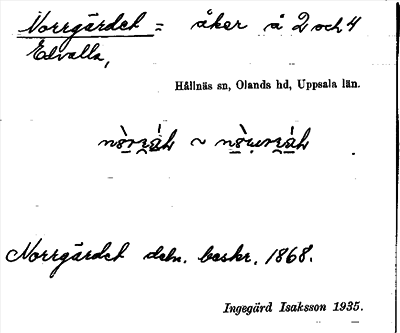 Norrgärdet = åker å 2 och 4
Edvalla,
Hållnäs sn, Olands hd, Uppsala län.
~
Norrgärdet deln. beskr. 1868.
Ingegärd Isaksson 1935.